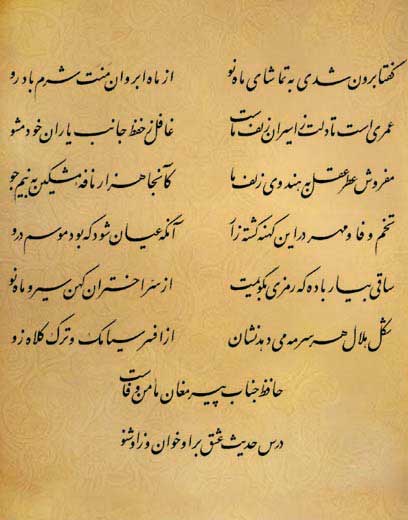 گفتا برون شدی به تماشای ماه نو از ماه ابروان منت شرم باد رو
عمری است تا دلت ز اسیران زلف ماست غافل ز حفظ جانب یاران خود مشو
مفروش عطر عقل به هندوی زلف ما کآنجا هزار نافه مشکین به نیم جو
تخم وفا و مهر در این کهنه کشته زار آنگه عیان شود که بود موسم درو
ساقی بیار باده که رمزی بگویمت از سر اختران کهن سیر و ماه نو
شکل هلال هر سر مه می دهد نشان از افسر سیامک و ترک کلاه زو
حافظ جناب پیر مغان مأمن وفاست
درس حدیث عشق بر او خوان و ز او شنو